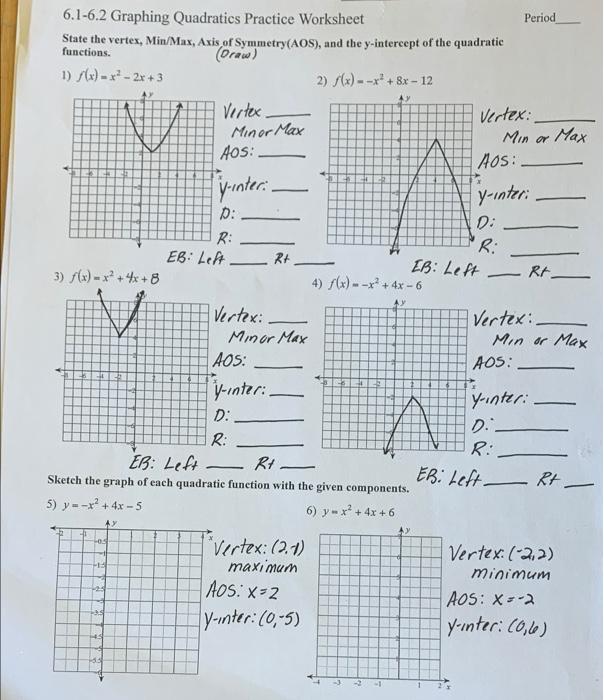 6.1-6.2 Graphing Quadratics Practice Worksheet Period____
State the vertex, Min/Max, Axis of Symmetry(AOS), and the y-intercept of the quadratic
functions. (Draw)
1) f(x) = x² - 2x + 3
Vertex ____
Min or Max
AOS: ____
y-inter: ____
D: ____
R: ____
EB: Left ____ Rt ____
2) f(x) = -x² + 8x - 12
Vertex: ____
Min or Max
AOS: ____
y-inter: ____
D: ____
R: ____
EB: Left ____ Rt ____
3) f(x) = x² + 4x + 8
Vertex: ____
Min or Max
AOS: ____
y-inter: ____
D: ____
R: ____
EB: Left ____ Rt ____
4) f(x) = -x² + 4x - 6
Vertex: ____
Min or Max
AOS: ____
y-inter: ____
D: ____
R: ____
EB: Left ____ Rt ____
Sketch the graph of each quadratic function with the given components.
5) y = -x² + 4x - 5
Vertex: (2,-1)
maximum
AOS: x=2
y-inter: (0,-5)
6) y = x² + 4x + 6
Vertex: (-2,2)
minimum
AOS: x=-2
y-inter: (0,6)